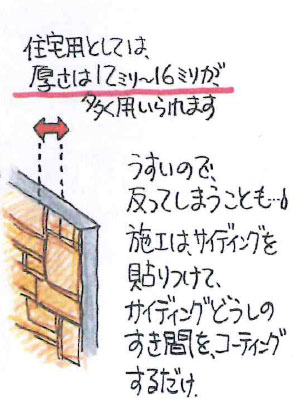 住宅用としては、
厚さは12ミリ〜16ミリが
多く用いられます
うすいので、
反ってしまうことも…
施工は、サイディングを
貼りつけて、
サイディングどうしの
すき間を、コーティング
するだけ.